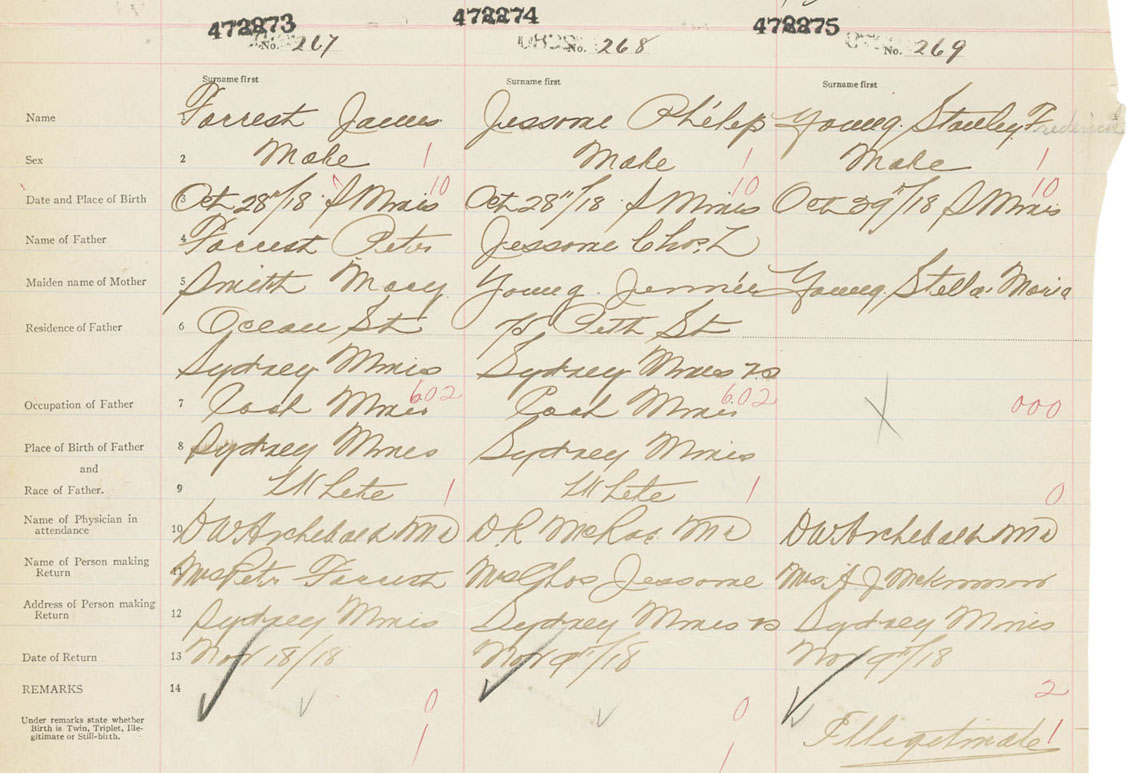 472273 472274 472275
No. 267 No. 268 No. 269
Surname first Surname first Surname first
Name Forrest James Jessome Philip Young. Stanley Frederick
Sex 2 Male 1 Male 1 Male 1
10 10 10
Date and Place of Birth 3 Oct 28"/18 S Mines Oct 28"/18 S Mines Oct 29"/18 S Mines
Name of Father 4 Forrest Peter Jessome Chas. L
Maiden name of Mother 5 Smith Mary Young. Jennie Young. Stella Maria
Residence of Father 6 Ocean St Pitt St
Sydney Mines Sydney Mines N.S
602 602
Occupation of Father 7 Coal Miner Coal Miner X 000
Place of Birth of Father 8 Sydney Mines Sydney Mines
and
Race of Father. 9 White 1 White 1 0
Name of Physician in
attendance 10 DW Archebald MD D.R McRae MD DW Archebald MD
Name of Person making
Return 11 Mrs Peter Forrest Mrs Chas Jessome Mrs. A J McKinnon
Address of Person making
Return 12 Sydney Mines Sydney Mines NS Sydney Mines
Date of Return 13 Nov 18/18 Nov 9"/18 Nov 9"/18
REMARKS 14 0 0 2
Under remarks state whether
Birth is Twin, Triplet, Ille-
gitimate or Still-birth. 1 1 Illegitimate 1